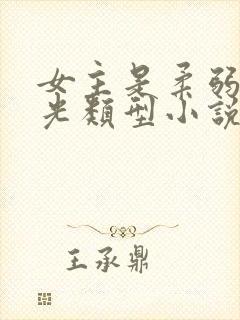 女主是柔弱
光類型小說
王承鼎